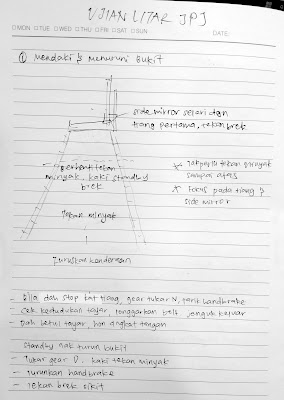 UJIAN LITAR JPJ
□MON □TUE □WED □THU □FRI □SAT □SUN
DATE:
① Mendaki & Menuruni Bukit
side mirror selari dgn
tiang pertama, tekan brek
berhenti tekan
minyak, kaki standby
brek
* Tak perlu tekan minyak
sampai atas
* Focus pada tiang &
side mirror
Tekan minyak
Luruskan kenderaan
- Bila dah stop kat tiang, gear tukar N, tarik handbrake
- Cek kedudukan tayar, longgarkan belt, jenguk keluar
- Dah betul tayar, hon angkat tangan
Standby nak turun bukit
- Tukar gear D, kaki tekan minyak
- Turunkan handbrake
- Tekan brek sikit